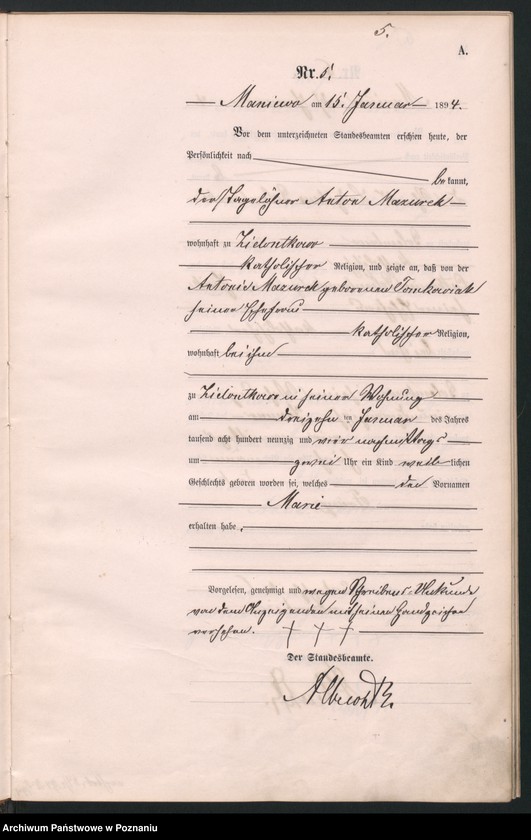 5.
A.
Nr. 5.
Maniewo am 15. Januar 1894.
Vor dem unterzeichneten Standesbeamten erschien heute, der
Persönlichkeit nach
bekannt,
der Tagelöhner Anton Mazurek
wohnhaft zu Zielontkowo
katholischer Religion, und zeigte an, daß von der
Antonie Mazurek geborenen Tomkowiak
seiner Ehefrau
katholischer Religion,
wohnhaft bei ihm
zu Zielontkowo in seiner Wohnung
am dreizehnten Januar des Jahres
tausend acht hundert neunzig und vier nachmittags
um zwei Uhr ein Kind weiblichen
Geschlechts geboren worden sei, welches den Vornamen
Marie
erhalten habe.
Vorgelesen, genehmigt und wegen Schreibens-Unkunde
von dem Anzeigenden mit seinem Handzeichen
versehen. + + +
Der Standesbeamte.
Albrecht
Archiwum Państwowe w Poznaniu